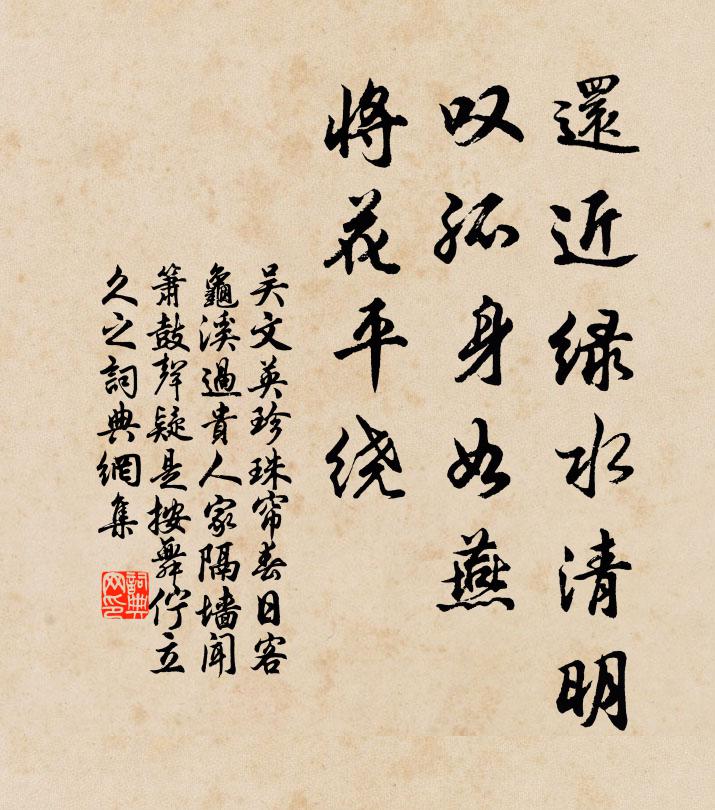 還近绿水清明
叹孤身如燕
将花平绕
吴文英珍珠帘春日客
龜溪過貴人家隔墙闻
箫鼓聲疑是按舞伫立
久之詞典網集
詞典
网印